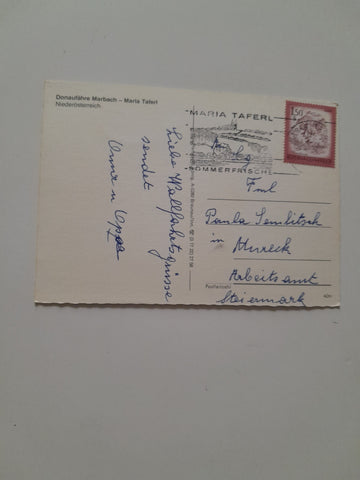 Donaufähre Marbach – Maria Taferl
Niederösterreich
Liebe Wallfahrtsgrüsse
sendet
Oma u Opa
MARIA TAFERL
SOMMERFRISCHE
1.50
Frl
Paula Semlitsch
in
Mureck
Arbeitsamt
Steiermark
Postleitzahl